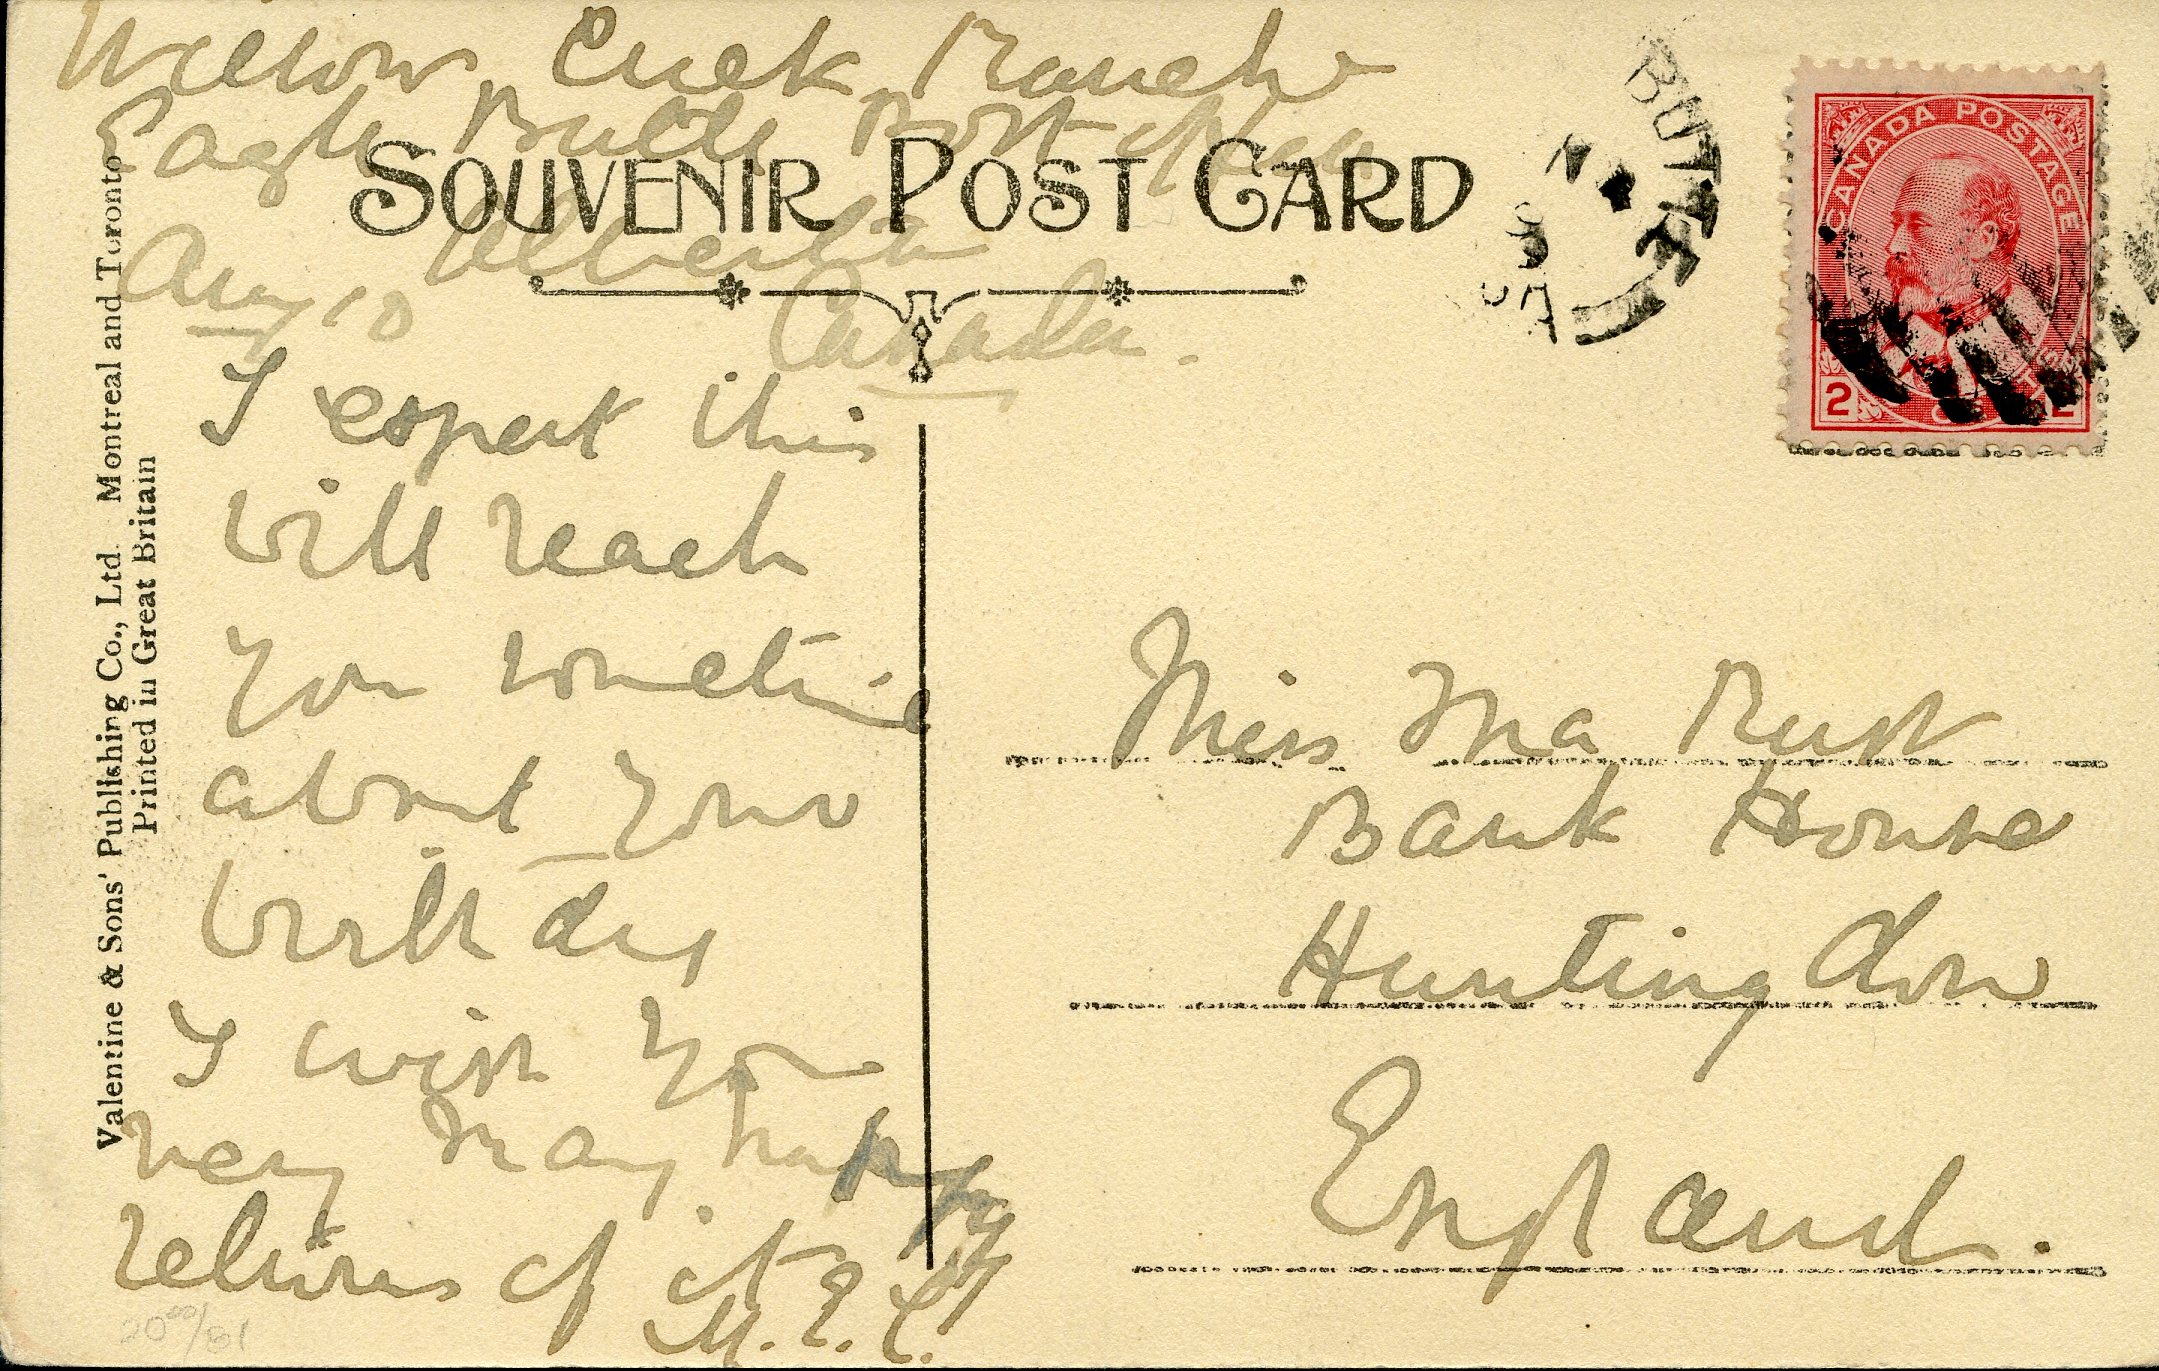 Willow Creek Ranche
Eagle Butte Post Office
Alberta
Canada.
Aug 10
I expect this
will reach
you sometime
about your
birthday
I wish you
very many happy
returns of it
M.E.
SOUVENIR POST CARD
Valentine & Sons' Publishing Co., Ltd. Montreal and Toronto
Printed in Great Britain
BUTTE
CANADA POSTAGE
2 CENTS 2
Miss Ina Rust
Bank House
Huntingdon
England.
20⁰⁰/81